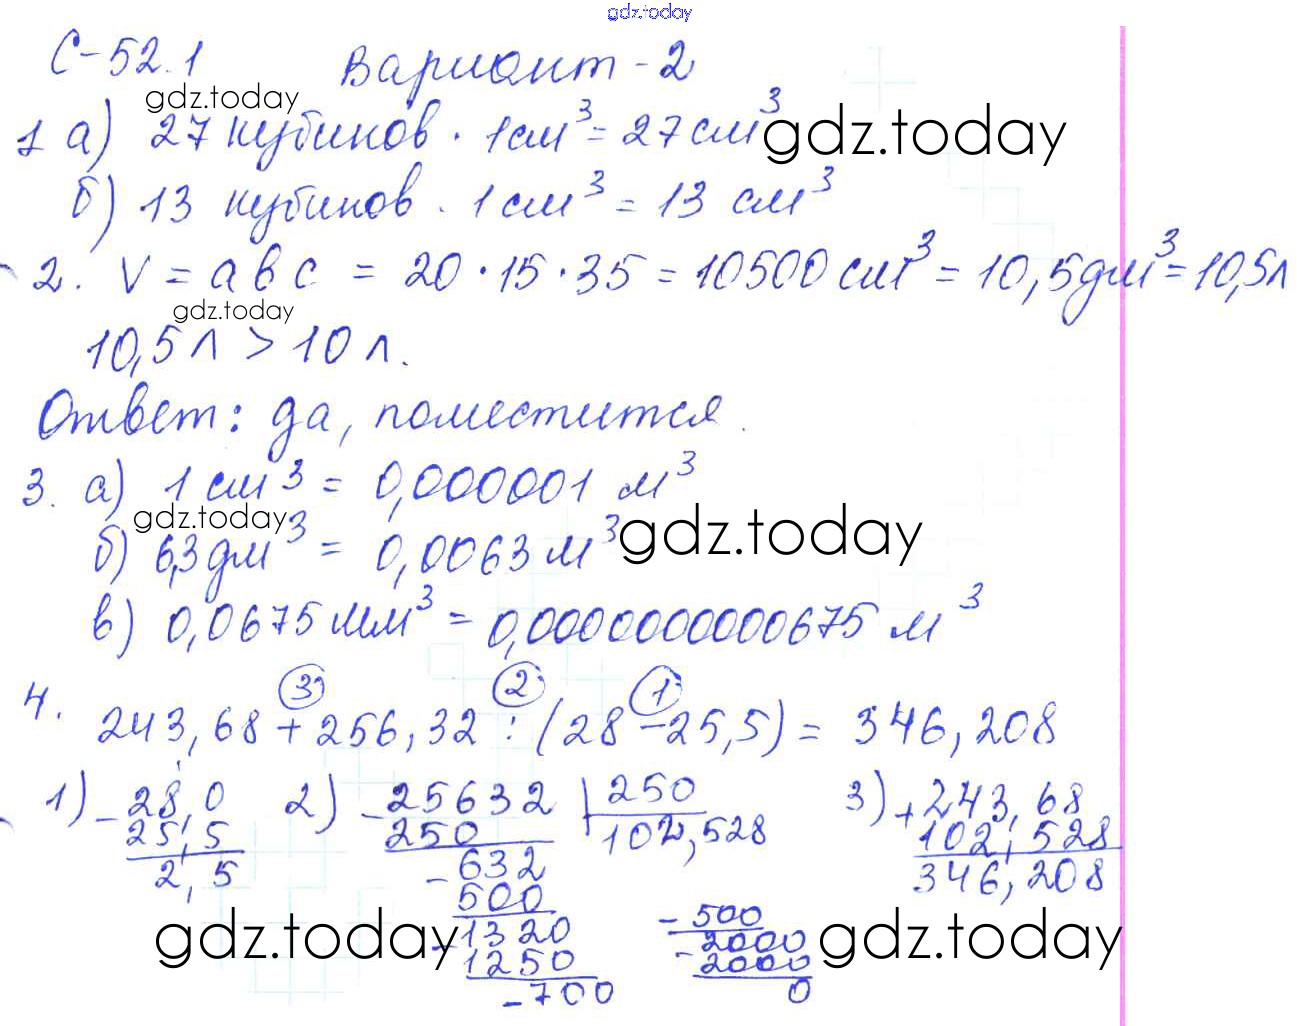 gdz.today
С-52.1 Вариант-2
gdz.today
1 а) 27 кубиков · 1см³ = 27 см³
gdz.today
б) 13 кубиков · 1 см³ = 13 см³
2. V = a b c = 20 · 15 · 35 = 10500 см³ = 10,5 дм³ = 10,5 л
gdz.today
10,5 л > 10 л.
Ответ: да, поместится.
3. а) 1 см³ = 0,000001 м³
gdz.today
gdz.today
б) 6,3 дм³ = 0,0063 м³
в) 0,0675 мм³ = 0,0000000000675 м³
3 2 1
4. 243,68 + 256,32 : (28 - 25,5) = 346,208
1) - 28,0 2) - 25632 | 250 3) + 243,68
25,5 250 102,528 102,528
2,5 - 632 346,208
500 - 500
gdz.today - 1320 - 2000 gdz.today
1250 2000
- 700 0